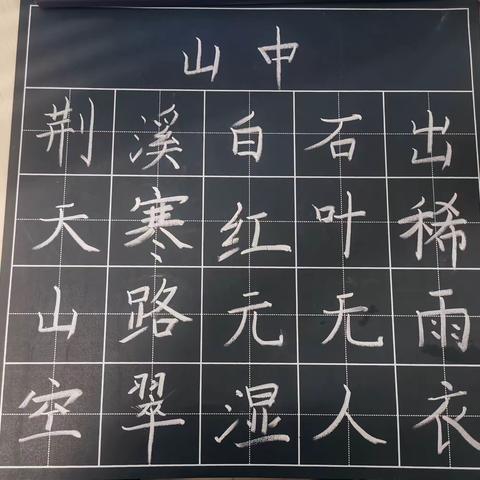 山中
荆溪白石出
天寒红叶稀
山路元无雨
空翠湿人衣